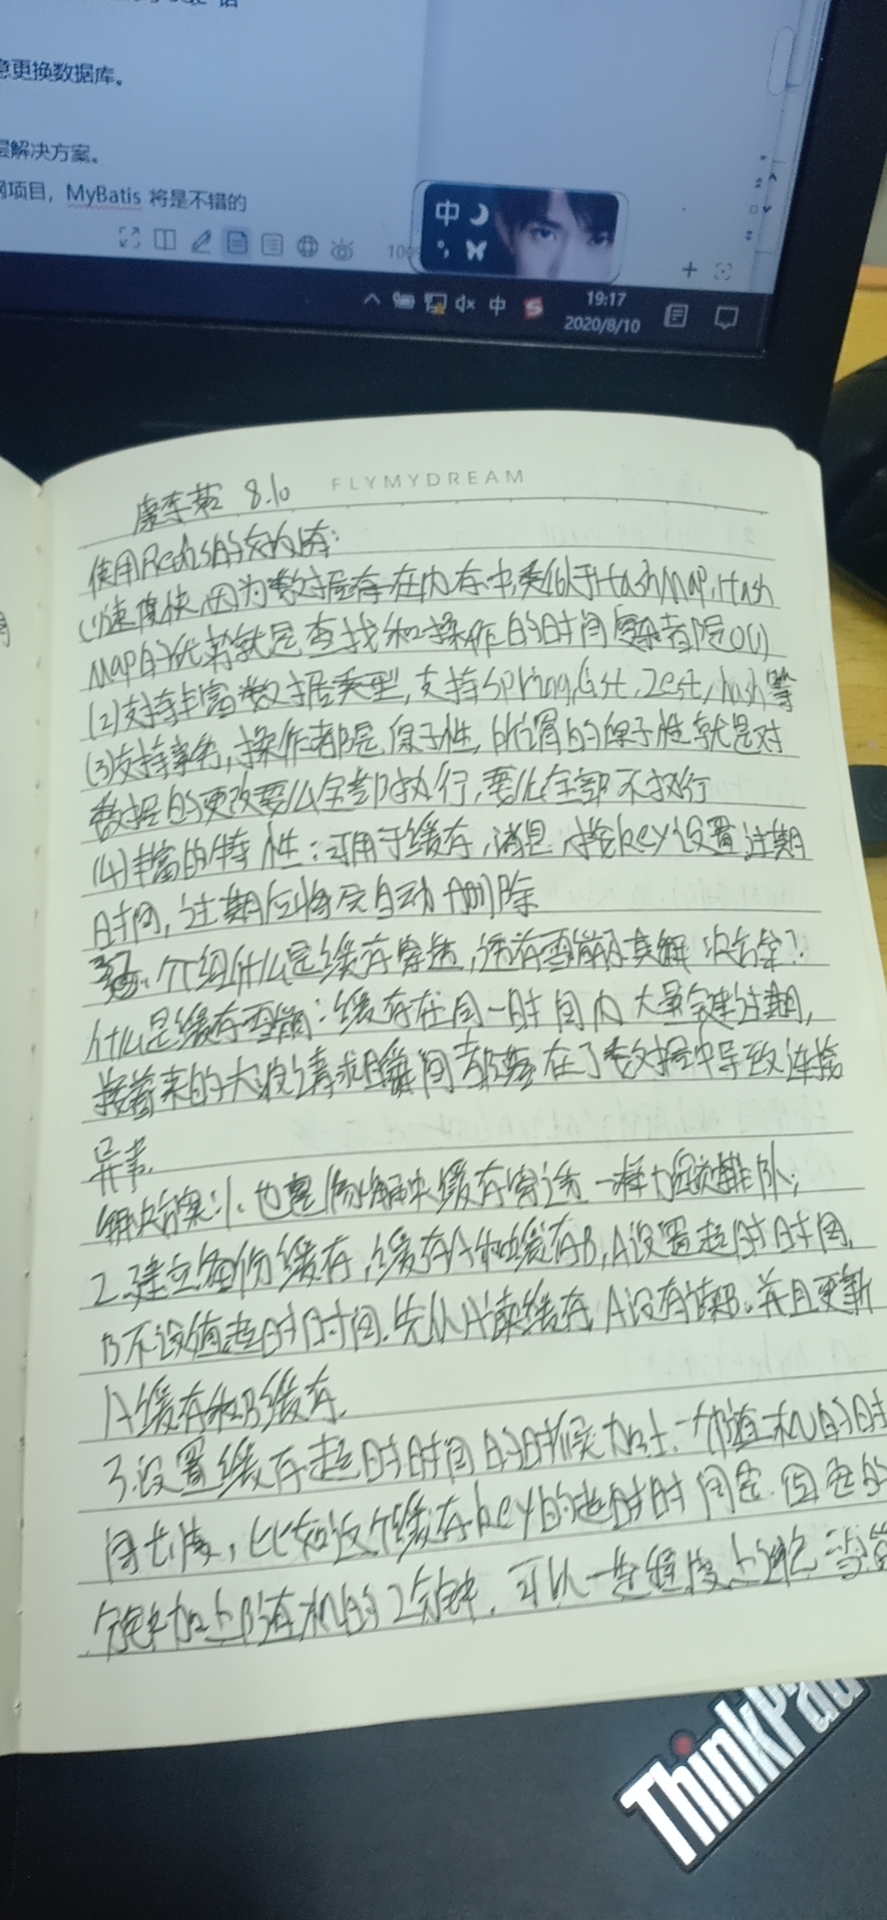 意更换数据库。
层解决方案。
网项目，MyBatis 将是不错的
中
100
中
19:17
2020/8/10
FLYMYDREAM
8.10
使用Redis的好处有:
(1)速度快,因为数据存在内存中,类似于HashMap,Hash
Map的优势就是查找和操作的时间复杂都是O(1)
(2)支持丰富数据类型,支持spring,list,Zest,hash等
(3)支持事务,操作都是原子性,的原子性就是对
数据的更改要么全部执行,要么全部不执行
(4)丰富的特性:可用于缓存,消息,按key设置过期
时间,过期后将会自动删除
介绍什么是缓存穿透,缓存雪崩及其解决方案?
什么是缓存雪崩:缓存在同一时间内大量键过期,
接着来的大波请求瞬间都落在了数据中导致连接
异常.
解决方案:1.也是像解决缓存穿透一样加锁排队;
2.建立备份缓存,缓存A和缓存B,A设置超时时间,
B不设值超时时间.先从A读缓存,A没有读B.并且更新
A缓存和B缓存.
3.设置缓存超时时间的时候加上一个随机的时
间长度,比如这个缓存key的超时时间是固定的
分钟加上随机的2分钟,可以一定程度上避免
ThinkPad